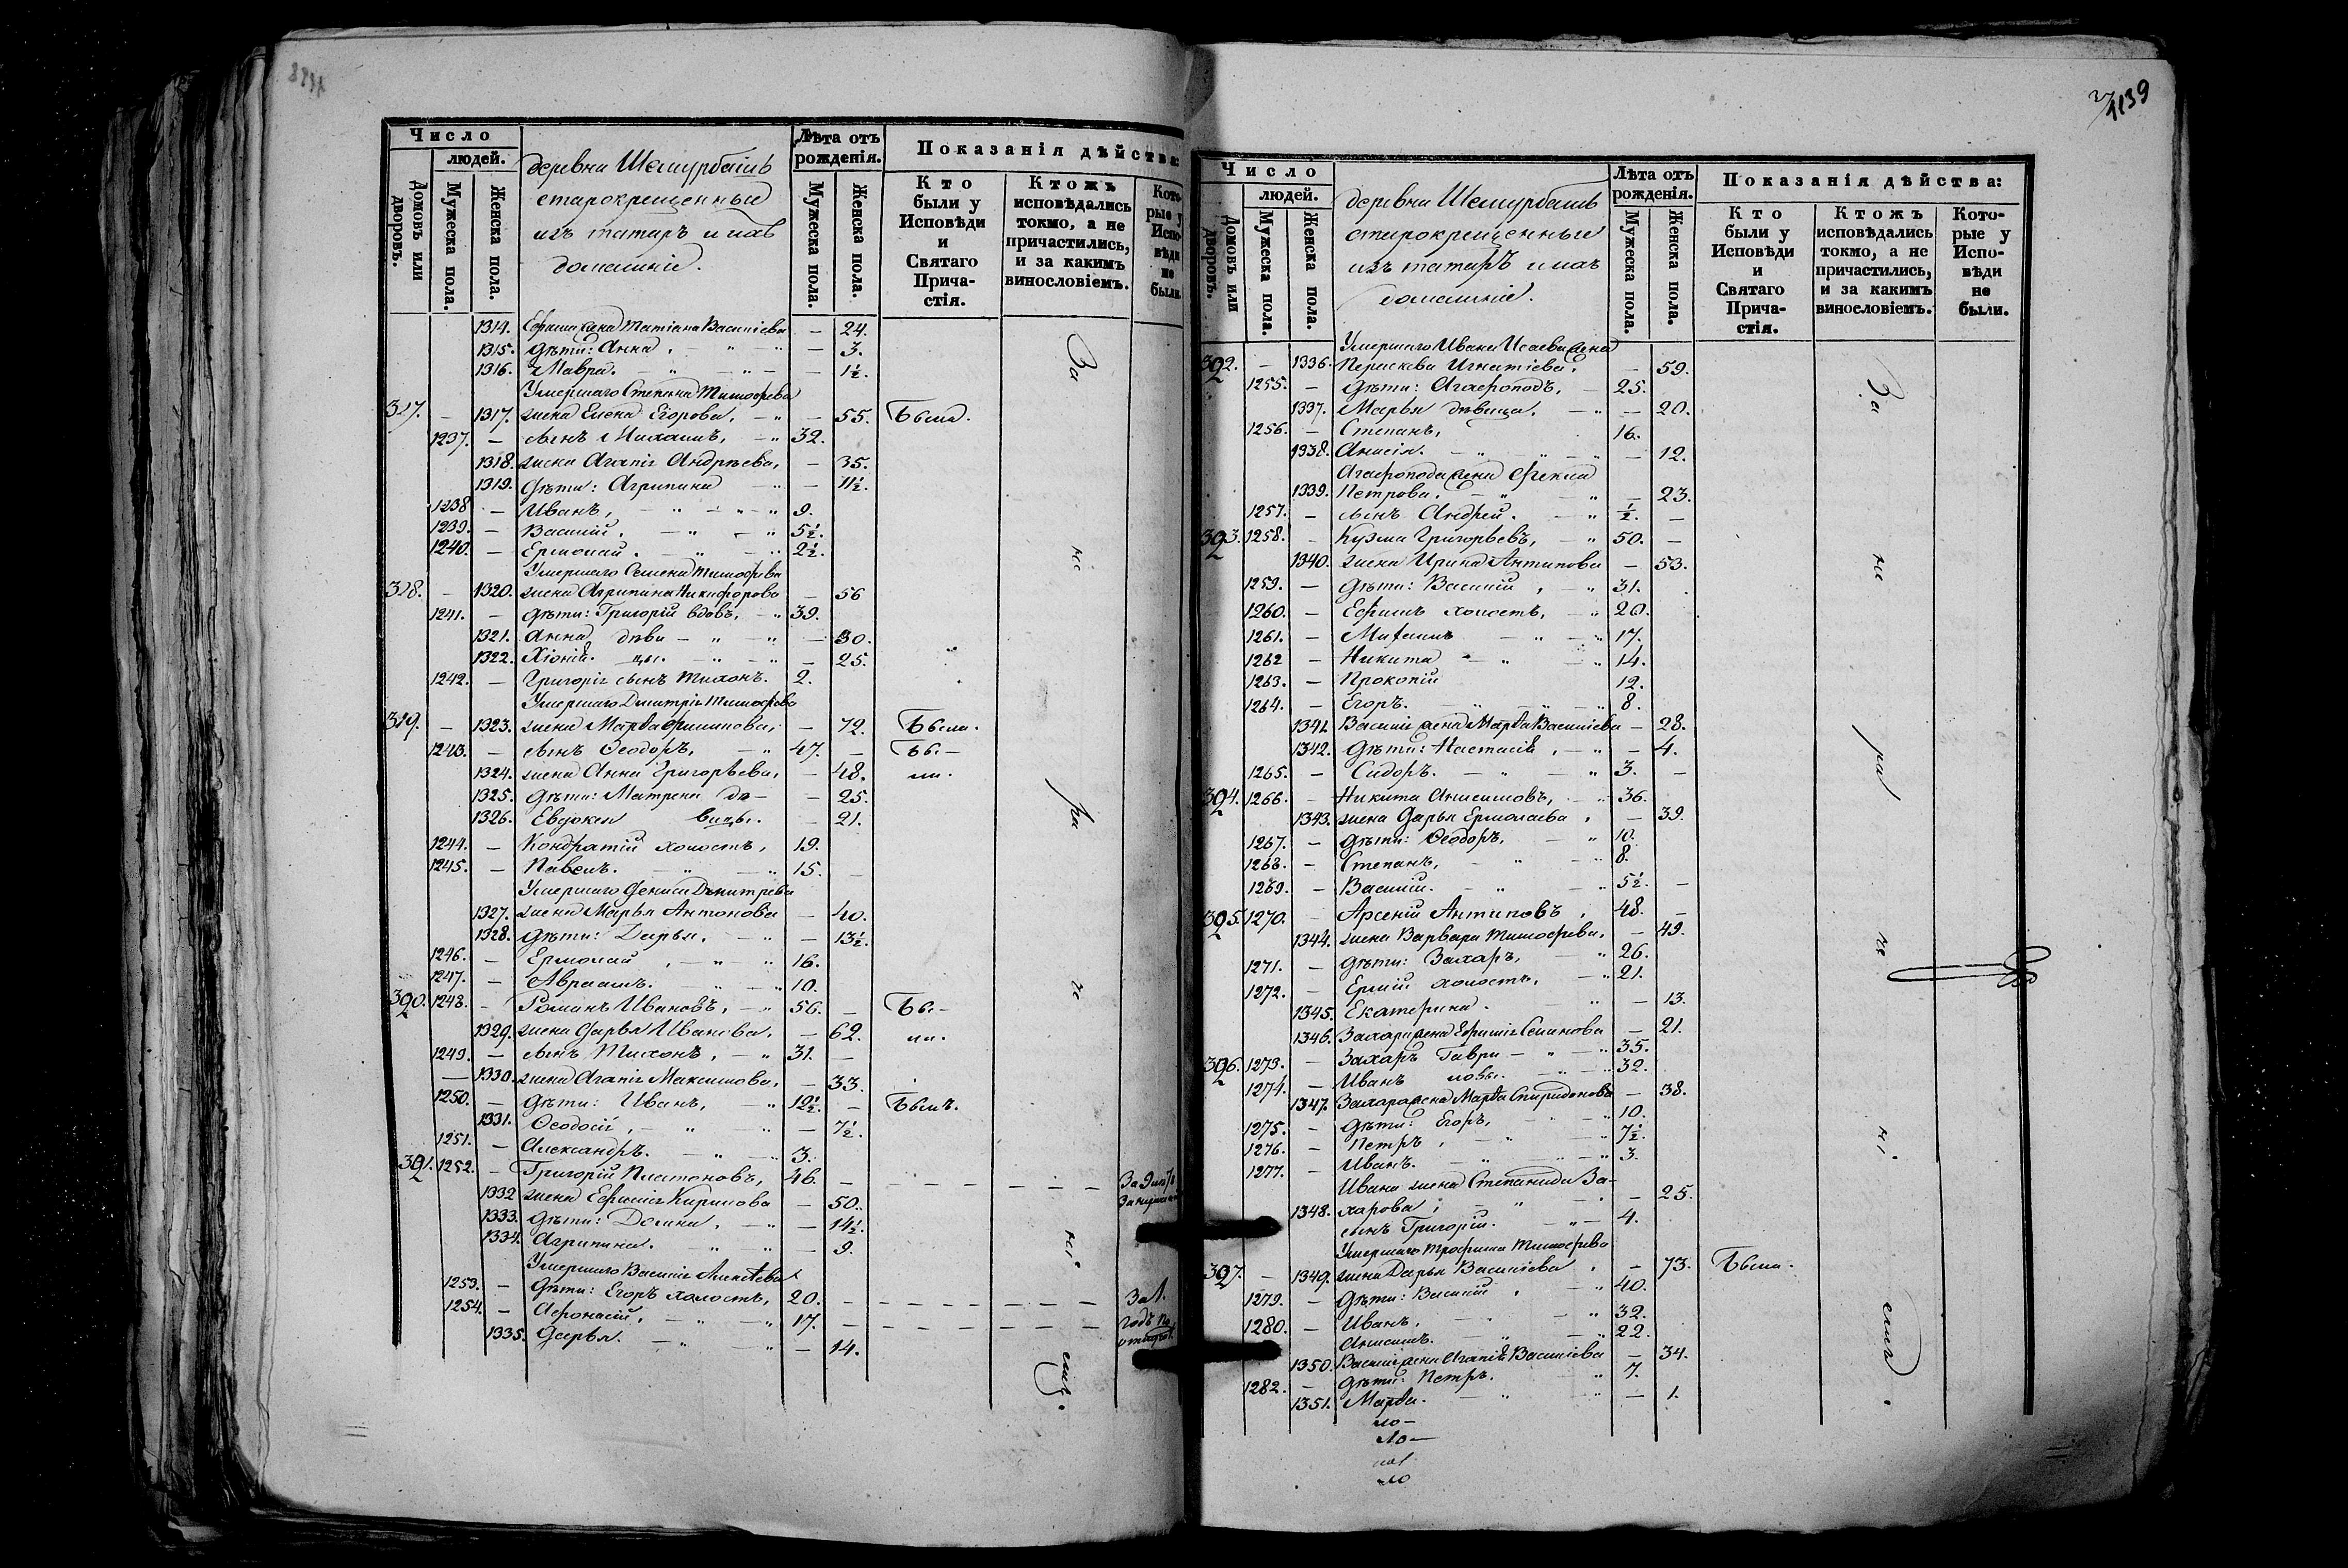 Число
людей.
Домовъ или дворовъ.
Мужеска пола.
Женска пола.
деревни Шемурбашъ
старокрещенные
изъ татаръ и ихъ
домашніе.
Лѣта отъ рожденія.
Мужеска пола.
Женска пола.
Показанія дѣйства:
Кто были у Исповѣди и Святаго Причастія.
Ктожъ исповѣдались токмо, а не причастились, и за какимъ винословіемъ.
Которые у Исповѣди не были.
1314. Ефима жена Татіана Василіева — 24.
1315. дѣти: Анна, — 3.
1316. Мавра. — 1½.
Умершаго Степана Тимоѳеева
1317. жена Елена Егорова, — 55. Была.
1237. — сынъ Михаилъ, 32.
1318. жена Агапія Андрѣева, — 35.
1319. дѣти: Агрипина — 11½.
1238 — Иванъ, 9.
1239. — Василій, 5½.
1240. — Ермолай. 2½.
Умершаго Семена Тимоѳеева
1320. жена Агрипина Никифорова — 56
1241. — дѣти: Григорій вдовъ, 39.
1321. Анна дѣви — 30.
1322. Хіонія. цы. — 25.
1242. — Григорія сынъ Тихонъ. 2.
Умершаго Димитрія Тимоѳеева
— 1323. жена Марѳа Филипова, — 72. Была.
1243. — сынъ Ѳеодоръ, 47. — Бы-
1324. жена Анна Григорьева, — 48. ли.
1325. дѣти: Матрена дѣ- — 25.
1326. Евдокія вицы. — 21.
1244. — Кондратій холостъ, 19.
1245. — Павелъ. 15. —
Умершаго Дениса Димитрева
1327. жена Марья Антонова — 40.
1328. дѣти: Дарья, — 13½.
1246. — Ермолай, 16.
1247. — Авраамъ. 10.
390. 1248. — Романъ Ивановъ, 56. — Бы-
1329. жена Дарья Иванова, — 62. ли.
1249. — сынъ Тихонъ, 31. —
— 1330. жена Агапія Максимова, — 33.
1250. — дѣти: Иванъ, 12½. — Былъ.
1331. Ѳеодосія, — 7½.
1251. — Александръ. 3.
391. 1252. — Григорій Платоновъ, 46. —
1332 жена Ефимія Кирилова — 50.
1333. дѣти: Домна, — 14½.
1334. Агрипина. — 9.
Умершаго Василія Алексѣева
1253. — дѣти: Егоръ холостъ, 20. — За 1.
1254. — Афонасій, 17. — годъ по
1335. Дарья. — 14.
За не ра че ні емъ.
1139
Число
людей.
Домовъ или дворовъ.
Мужеска пола.
Женска пола.
деревни Шемурбашъ
старокрещенные
изъ татаръ и ихъ
домашніе.
Лѣта отъ рожденія.
Мужеска пола.
Женска пола.
Показанія дѣйства:
Кто были у Исповѣди и Святаго Причастія.
Ктожъ исповѣдались токмо, а не причастились, и за какимъ винословіемъ.
Которые у Исповѣди не были.
Умершаго Ивана Исаева жена
392. — 1336. Перасковія Игнатіева, — 59.
1255. — дѣти: Агафоподъ, — 25.
1337. Марья дѣвица. — 20.
1256. — Степанъ, 16.
1338. Анисія. — 12.
Агафопода жена Фекла
1339. Петрова. — 23.
1257. — сынъ Андрей. ½. —
393. 1258. — Кузма Григорьевъ, 50. —
1340. жена Ирина Антипова — 53.
1259. — дѣти: Василій, 31.
1260. — Ефимъ холостъ, 20.
1261. — Михаилъ 17.
1262 — Никита 14.
1263. — Прокопій 12.
1264. — Егоръ. 8.
1341. Василія жена Марѳа Василіева — 28.
1342. дѣти: Настасія, — 4.
1265. — Сидоръ. 3. —
394. 1266. — Никита Анисимовъ, 36.
1343. жена Дарья Ермолаева, — 39.
1267. — дѣти: Ѳеодоръ, 10.
1268. — Степанъ, 8.
1269. — Василій. 5½. —
395. 1270. — Арсеній Антиповъ, 48. —
1344. жена Варвара Тимоѳеева, — 49.
1271. — дѣти: Захаръ, 26.
1272. — Ермій холостъ, 21.
1345. Екатерина. — 13.
1346. Захара жена Ефимія Семенова — 21.
396. 1273. — Захаръ Гаври- 35.
1274. — Иванъ ловы. 32.
1347. Захара жена Марѳа Спиридонова — 38.
1275. — дѣти: Егоръ, 10.
1276. — Петръ, 7½.
1277. — Иванъ. 3.
Ивана жена Степанида За-
1348. харова, — 25.
сынъ Григорій. 4.
Умершаго Трофима Тимоѳеева
397. — 1349. жена Дарья Василіева, — 73. Была.
1279. — дѣти: Василій, 40.
1280. — Иванъ, 32.
Анисимъ. 22.
1350. Василія жена Агапія Василіева — 34.
1282. — дѣти: Петръ. 7.
1351. Марѳа. — 1.
За не ра че ні емъ.